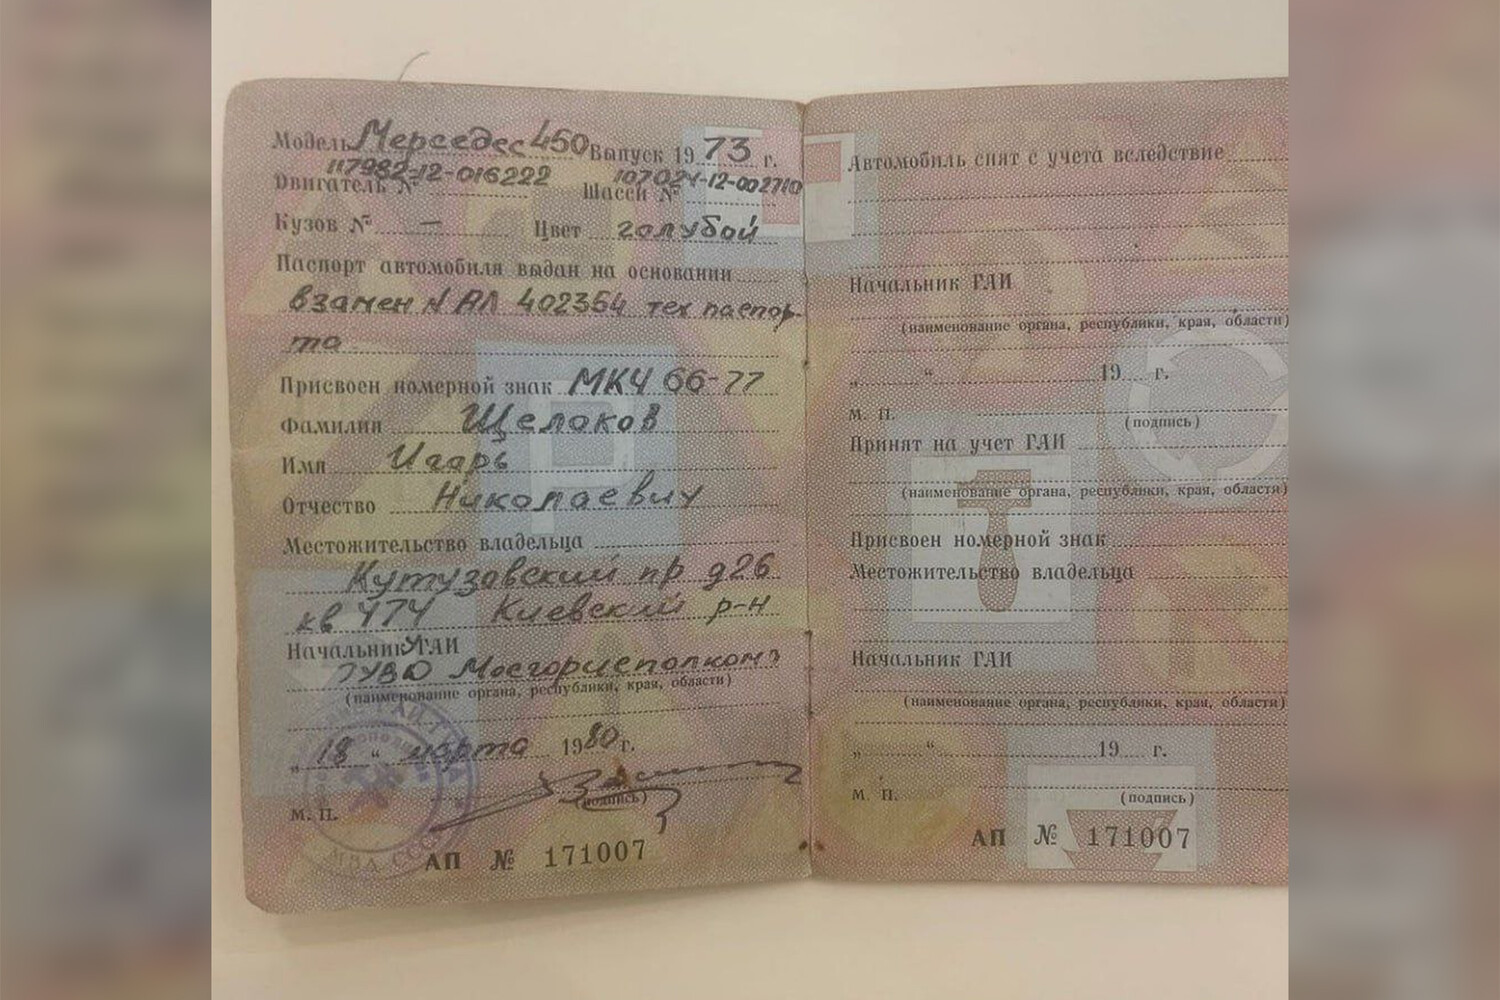 Модель Мерседес 450 Выпуск 19 73 г.
Двигатель № 117982-12-016222 Шасси № 107024-12-002710
Кузов № — Цвет голубой
Паспорт автомобиля выдан на основании
взамен N АЛ 402354 тех паспор-
та
Присвоен номерной знак МКЧ 66-77
Фамилия Щелоков
Имя Игорь
Отчество Николаевич
Местожительство владельца
Кутузовский пр д 26
кв 474 Киевский р-н
Начальник УГАИ
ГУВД Мосгорисполкома
(наименование органа, республики, края, области)
„ 18 “ марта 19 80 г.
(подпись)
М. П.
МВД СССР
АП № 171007
Автомобиль снят с учета вследствие
Начальник ГАИ
(наименование органа, республики, края, области)
„ “ 19 г.
М. П.
(подпись)
Принят на учет ГАИ
(наименование органа, республики, края, области)
Присвоен номерной знак
Местожительство владельца
Начальник ГАИ
(наименование органа, республики, края, области)
„ “ 19 г.
М. П. (подпись)
АП № 171007